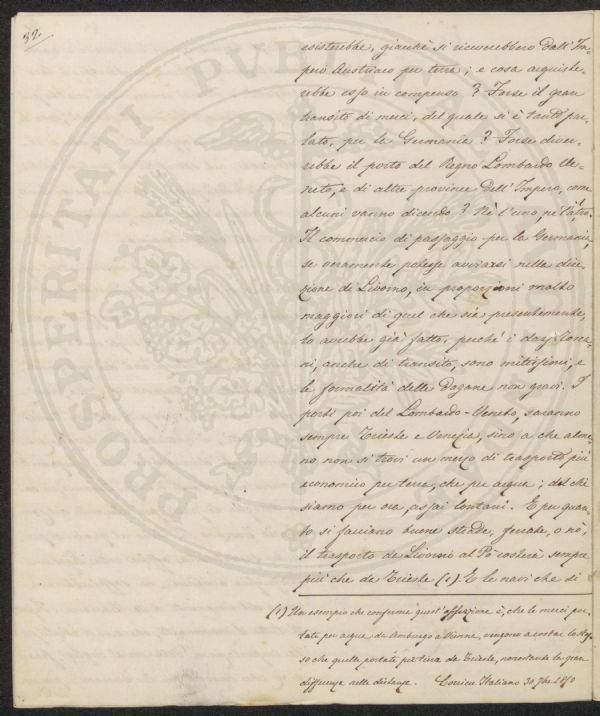 32.
esisterebbe, giacchè si riceverebbero dall'Im-
pero Austriaco per terra; e cosa acquiste-
rebbe esso in compenso? Forse il gran
transito di merci, del quale si è tanto par-
lato, per la Germania? Forse diver-
rebbe il porto del Regno Lombardo Ve-
neto, e di altre province dell'Impero, come
alcuni vanno dicendo? Nè l'uno, nè l'altro.
Il commercio di passaggio per la Germania,
se veramente potesse avviarsi nella dire-
zione di Livorno, in proporzioni molto
maggiori di quel che sia presentemente,
lo avrebbe già fatto, perchè i dazj Tosca-
ni, anche di transito, sono mitissimi, e
le formalità delle Dogane non gravi. I
porti poi del Lombardo-Veneto, saranno
sempre Trieste e Venezia, sino a che alme-
no non si trovi un mezzo di trasporto più
economico per terra, che per acqua; dal chè
siamo per ora assai lontani. E per quan-
to si facciano buone strade, ferrate, o nò,
il trasporto da Livorno al Pò costerà sempre
più che da Trieste (1). E le navi che si
(1) Un esempio che conferma quest'asserzione è, che le merci por-
tate per acqua da Amburgo a Vienna, vengono a costar lo stes-
so che quelle portate per terra da Trieste, nonostante la gran
differenza nelle distanze. Corriere Italiano 30 7bre 1850
PROSPERITATI PVBLICAE